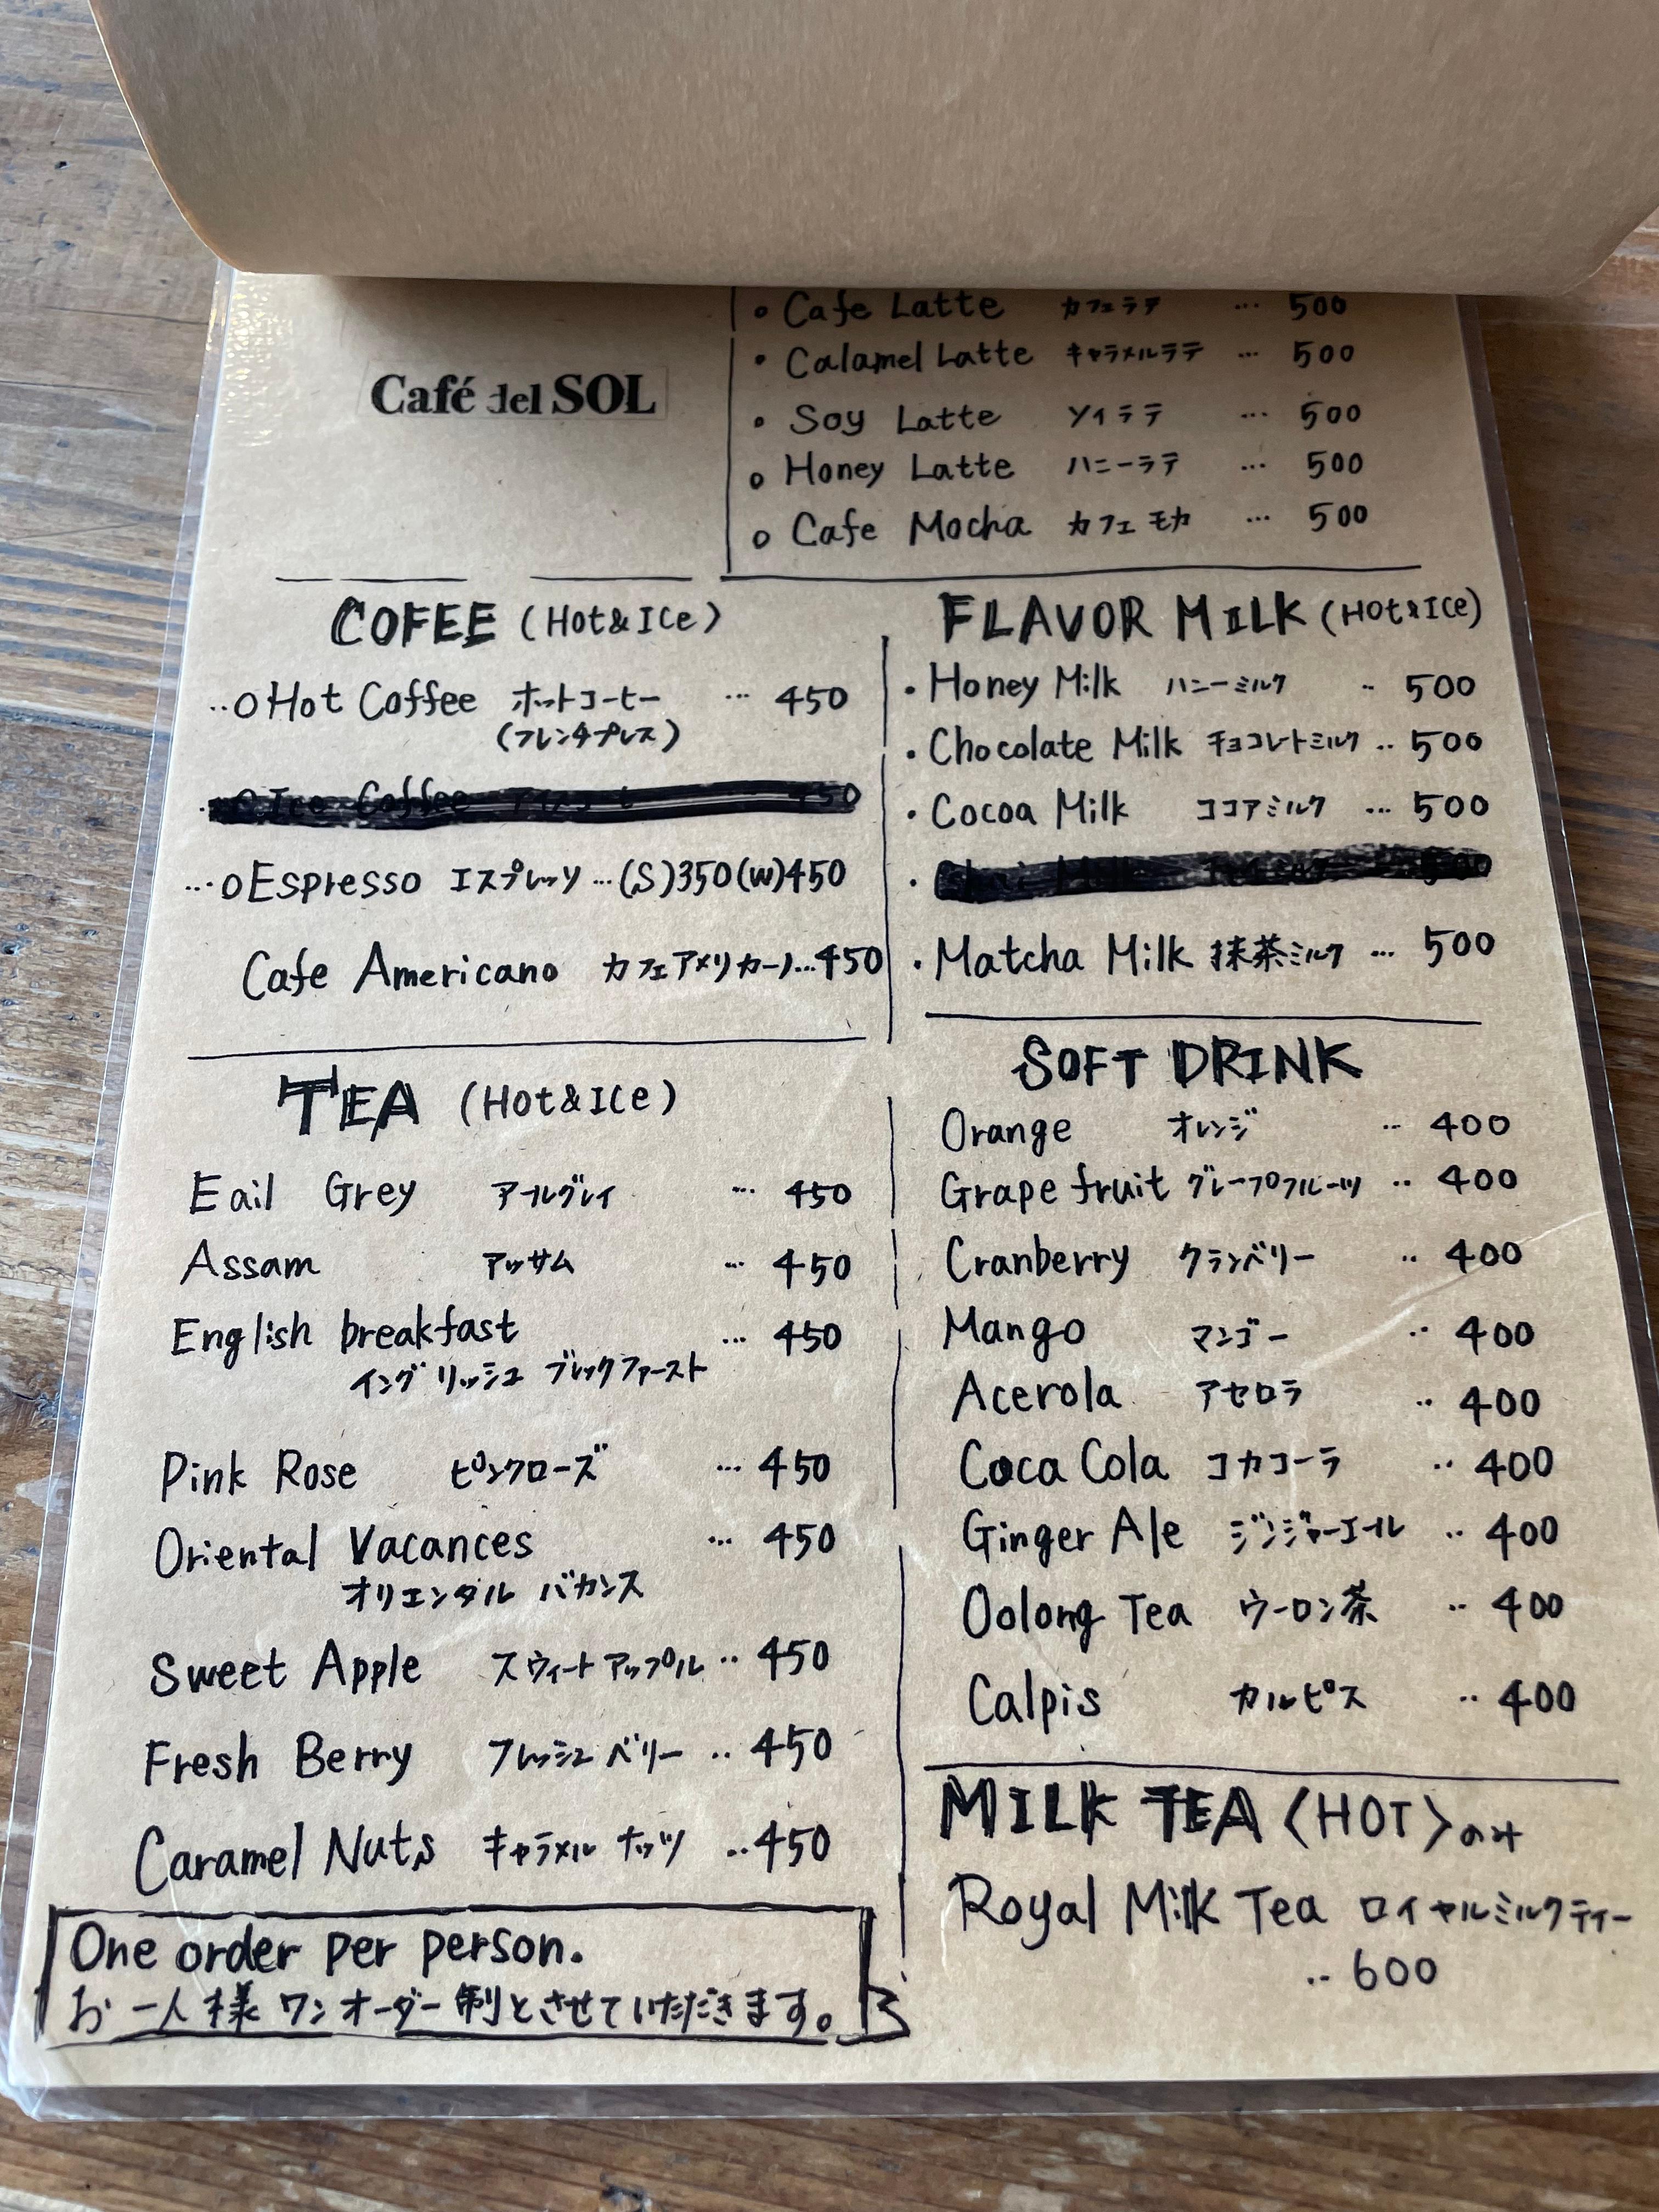 Café del SOL
○ Cafe Latte カフェラテ … 500
・ Calamel Latte キャラメルラテ … 500
・ Soy Latte ソイラテ … 500
○ Honey Latte ハニーラテ … 500
○ Cafe Mocha カフェモカ … 500
COFEE (Hot&Ice)
‥○Hot Coffee ホットコーヒー … 450
(フレンチプレス)
○Ice Coffee 450
…○Espresso エスプレッソ…(S)350(W)450
Cafe Americano カフェアメリカーノ…450
TEA (Hot&Ice)
Eail Grey アールグレイ … 450
Assam アッサム … 450
English breakfast … 450
イングリッシュ ブレックファースト
Pink Rose ピンクローズ … 450
Oriental Vacances … 450
オリエンタル バカンス
Sweet Apple スウィートアップル ‥ 450
Fresh Berry フレッシュベリー ‥ 450
Caramel Nuts キャラメル ナッツ ‥450
One order per person.
お一人様ワンオーダー制とさせていただきます。
FLAVOR MILK (Hot&Ice)
・Honey Milk ハニーミルク ‥ 500
・Chocolate Milk チョコレートミルク ‥ 500
・Cocoa Milk ココアミルク … 500
・ Milk 500
・Matcha Milk 抹茶ミルク … 500
SOFT DRINK
Orange オレンジ ‥ 400
Grape fruit グレープフルーツ ‥ 400
Cranberry クランベリー ‥ 400
Mango マンゴー ‥ 400
Acerola アセロラ ‥ 400
Coca Cola コカコーラ ‥ 400
Ginger Ale ジンジャーエール ‥ 400
Oolong Tea ウーロン茶 ‥ 400
Calpis カルピス ‥ 400
MILK TEA 〈HOT〉のみ
Royal Milk Tea ロイヤルミルクティー
‥ 600